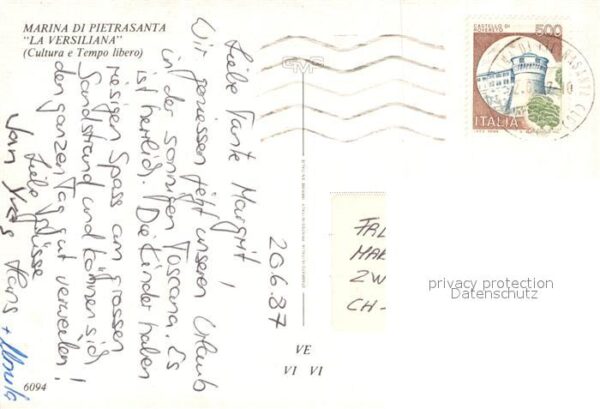 MARINA DI PIETRASANTA
"LA VERSILIANA"
(Cultura e Tempo libero)
20.6.87
Liebe Tante Margrit,
Wir geniessen jetzt unseren Urlaub
in der sonnigen Toscana. Es
ist herrlich. Die Kinder haben
riesigen Spass am grossen
Sandstrand und können sich
den ganzen Tag gut verweilen!
Liebe Grüsse
Yves Hans + Ursula
6094
CASTELLO DI
ROVERETO
500
ITALIA
FAL
MAR
ZW
CH-
privacy protection
Datenschutz
VE
VI VI